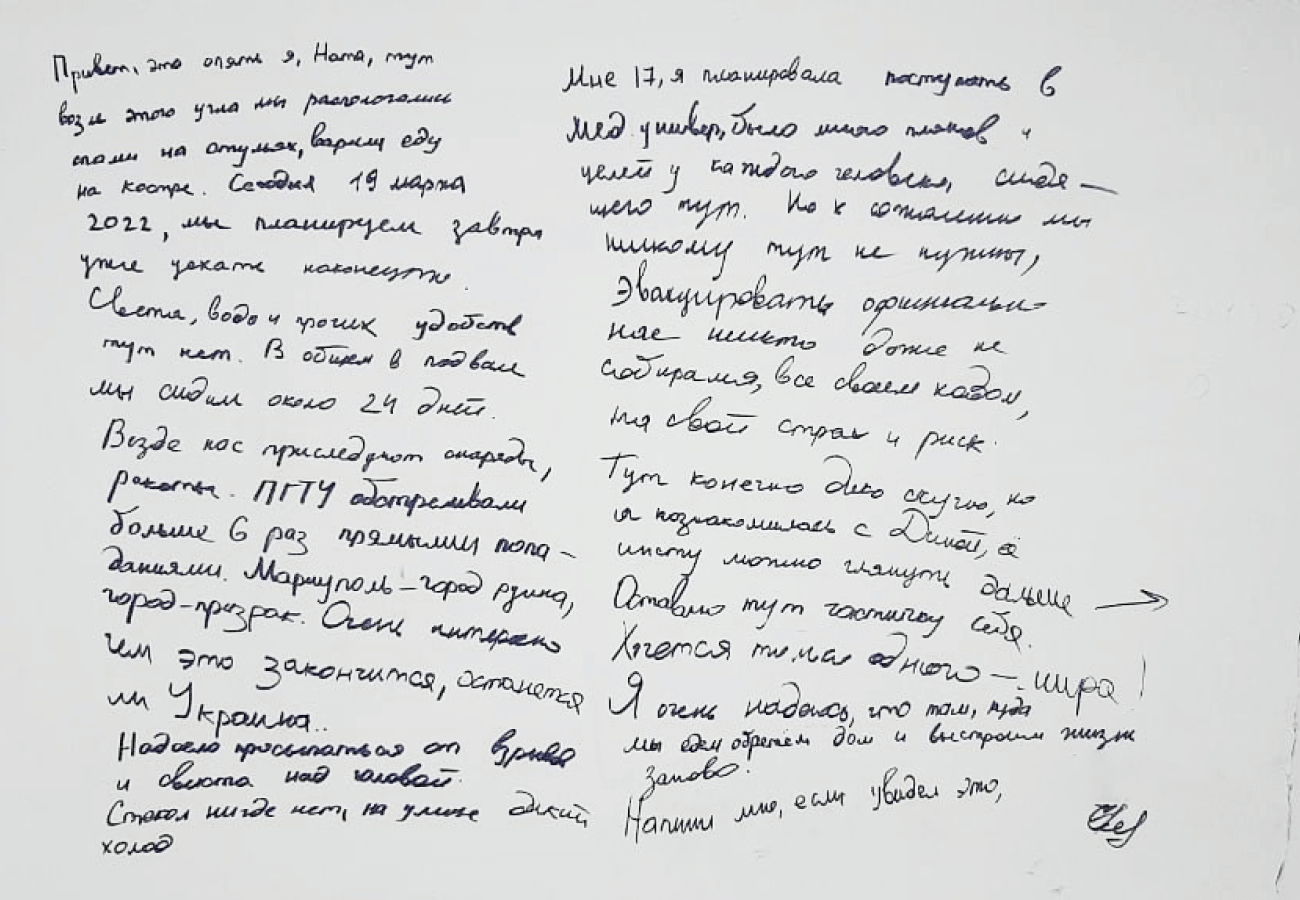 Привет, это опять я, Ната, тут
возле этого угла мы распологались
спали на стульях, варили еду
на костре. Сегодня 19 марта
2022, мы планируем завтра
уже уехать наконецто.
Света, воды и прочих удобств
тут нет. В общем в подвале
мы сидим около 24 дней.
Везде нас приследуют снаряды,
ракеты. ПГТУ обстреливали
больше 6 раз прямыми попа-
даниями. Мариуполь – город руина,
город-призрак. Очень интересно
чем это закончится, останется
ли Украина..
Надоело просыпаться от взрыва
и свиста над головой.
Стекол нигде нет, на улице дикий
холод
Мне 17, я планировала поступать в
мед. универ, было много планов и
целей у каждого человека, сидя-
щего тут. Но к сожалению мы
никому тут не нужны,
Эвакуировать официаль-
ное никто даже не
собирался, все своем ходом,
на свой страх и риск.
Тут конечно дико скучно, но
я познакомилась с Диной, её
инсту можно глянуть дальше →
Оставлю тут частичку себя.
Хочется только одного – мира!
Я очень надеюсь, что там, куда
мы едем обретём дом и выстроим жизнь
заново.
Напиши мне, если увидел это,